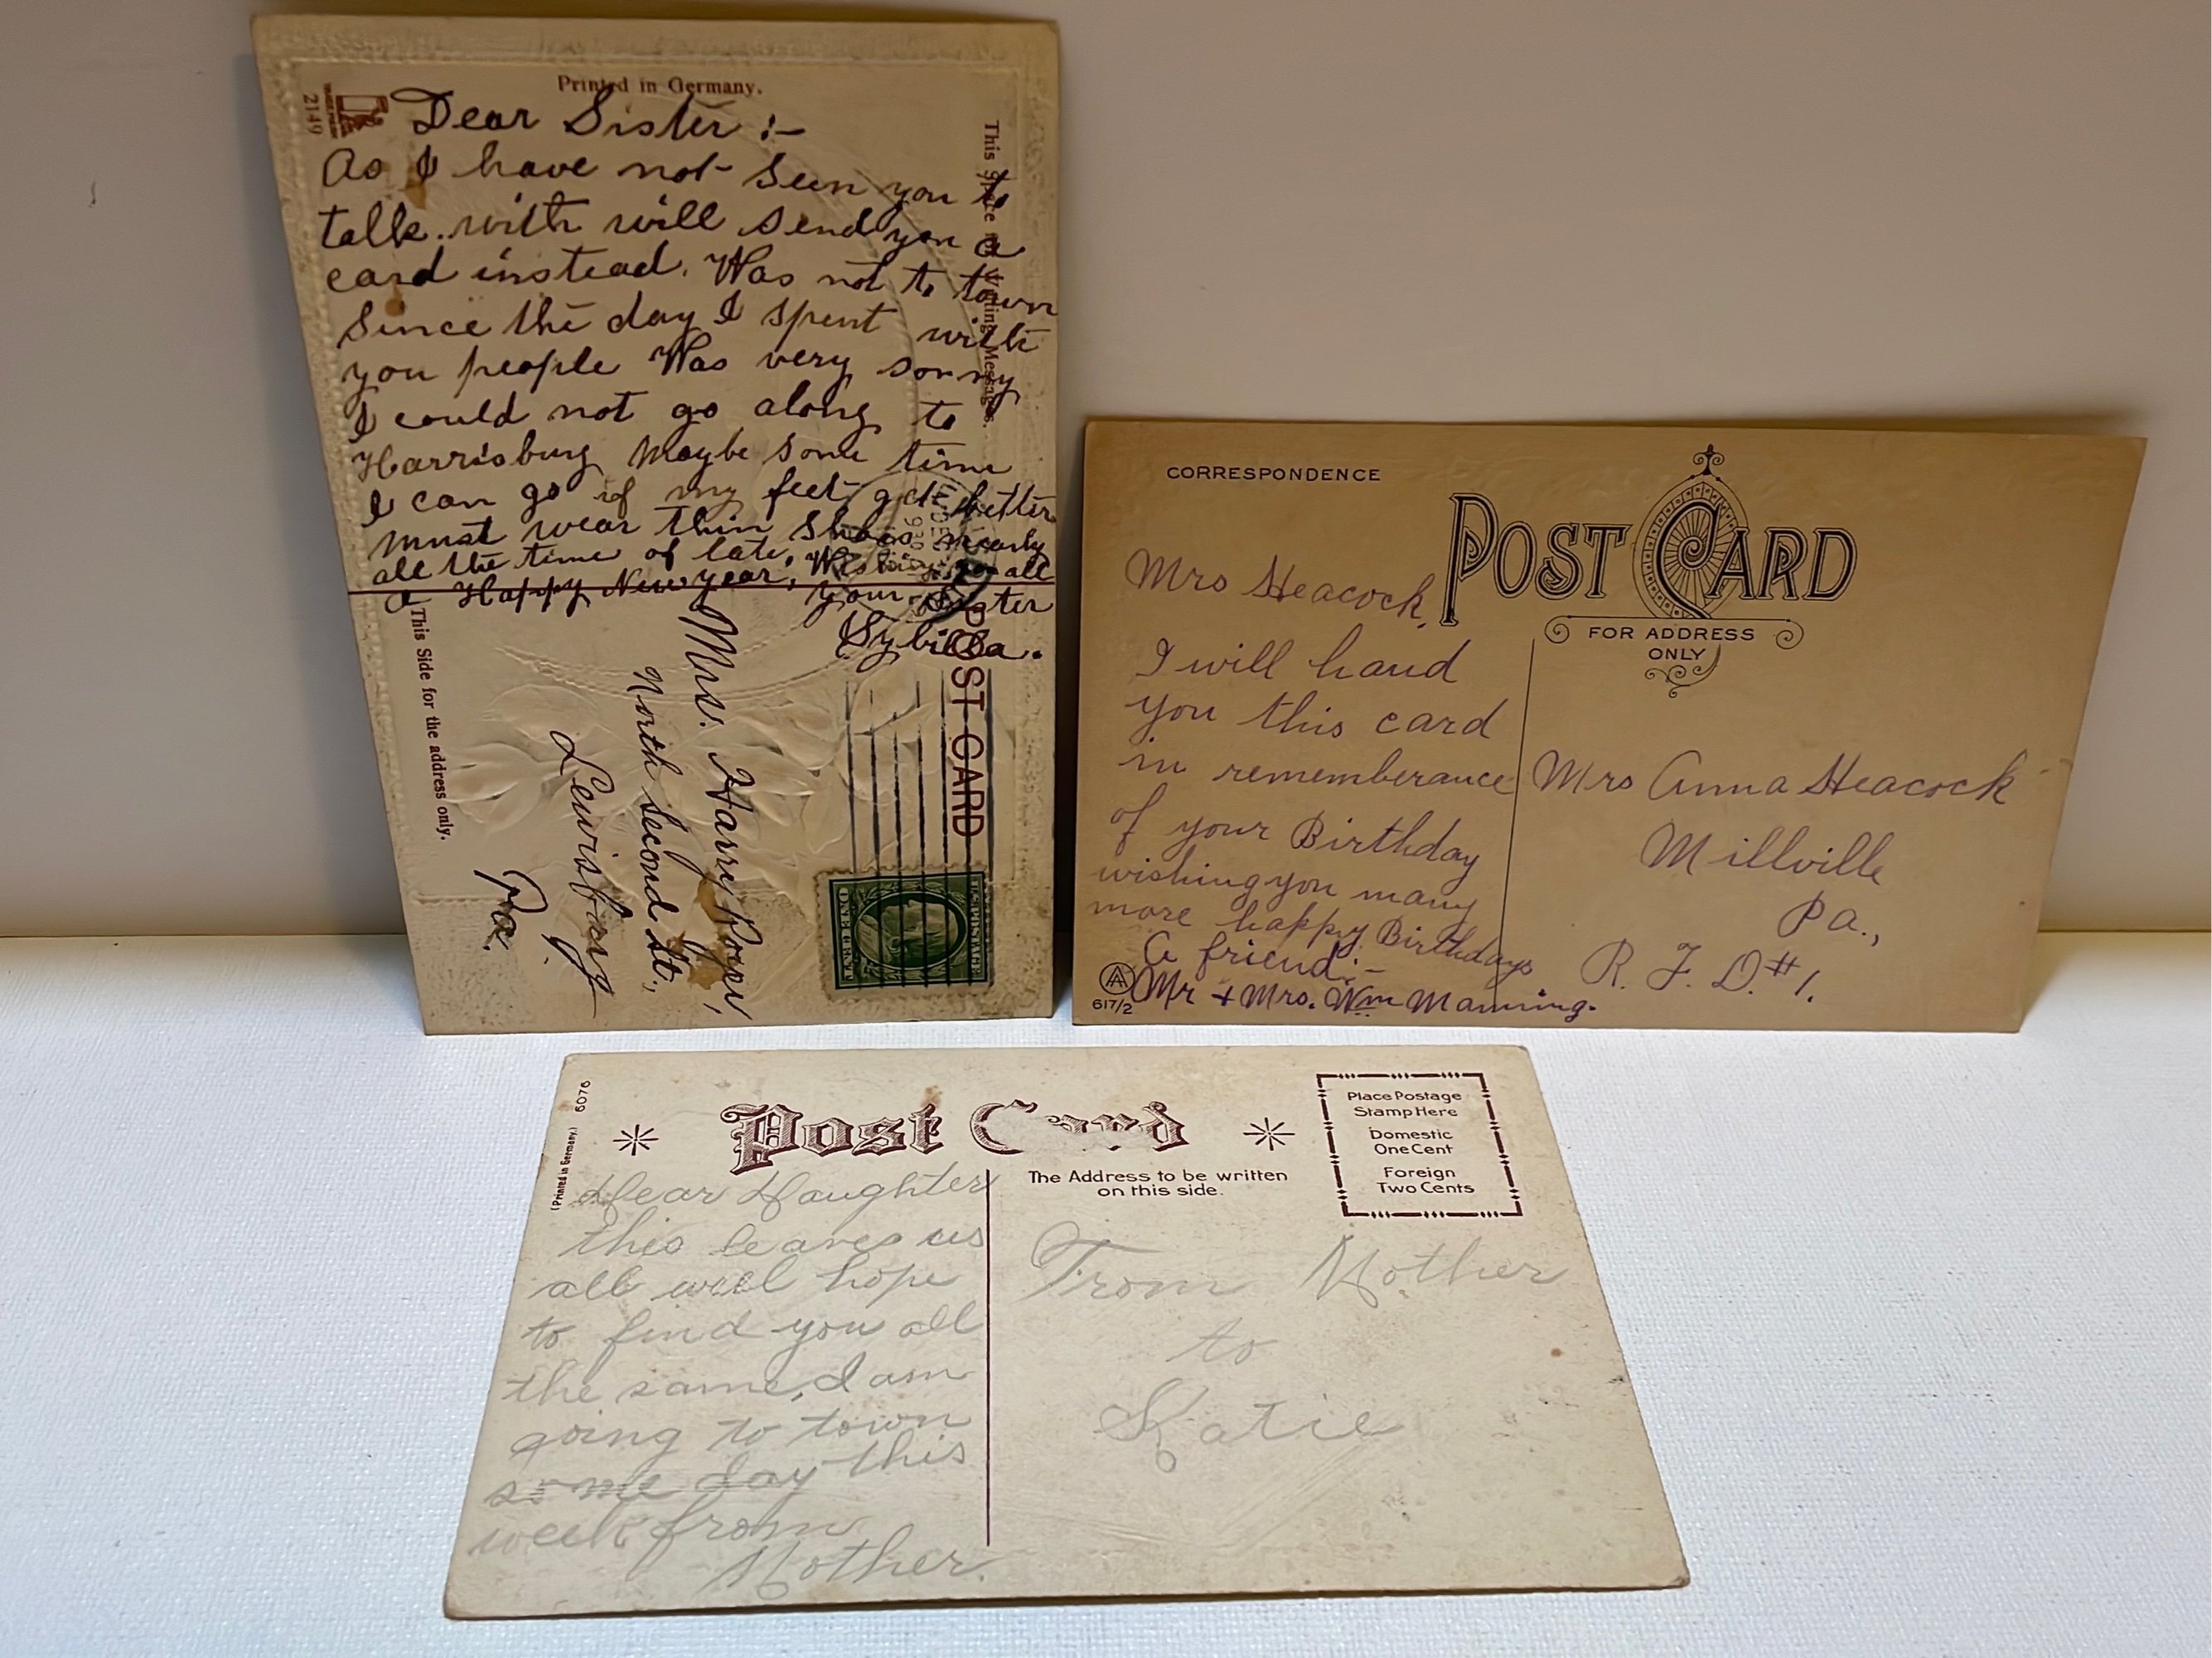 Printed in Germany.
2149
Dear Sister :-
As I have not seen you to
talk with will send you a
card instead. Was not to town
since the day I spent with
you people Was very sorry
I could not go along to
Harrisburg Maybe some time
I can go if my feet get better
must wear thin shoes nearly
all the time of late, Wishing you all
a Happy New year, your Sister
Sybilla.
This Space for Writing Messages.
POST CARD
This Side for the address only.
Mrs. Harry
North Second St.,
Lewisburg
Pa.
CORRESPONDENCE
POST CARD
FOR ADDRESS
ONLY
Mrs Heacock,
I will hand
you this card
in rememberance
of your Birthday
wishing you many
more happy Birthdays
A friend:-
Mr + Mrs. Wm Manning.
AA
617/2
Mrs Anna Heacock
Millville
Pa.,
R. F. D. #1.
(Printed in Germany.) 6076
Post Card
The Address to be written
on this side.
Place Postage
Stamp Here
Domestic
One Cent
Foreign
Two Cents
Dear Daughter
this leaves us
all well hope
to find you all
the same, I am
going to town
some day this
week from
Mother.
From Mother
to
Katie